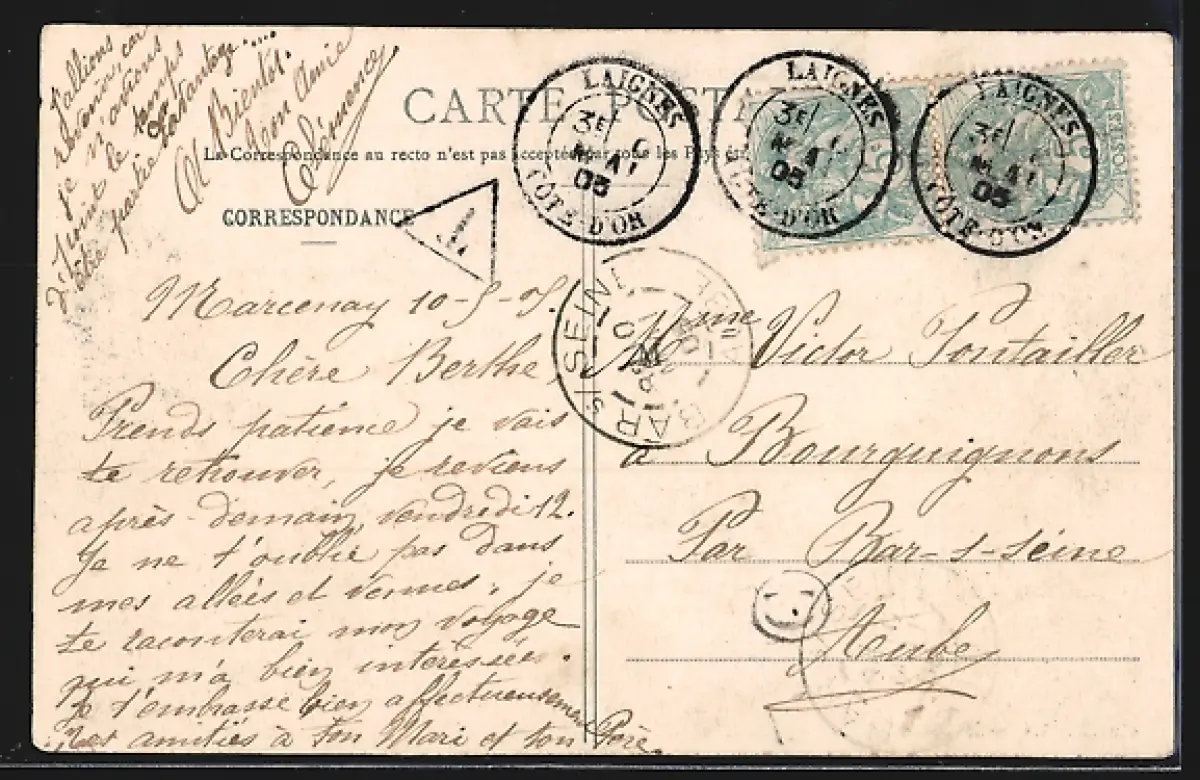 J'allions
revenir, car
je n'avions
point le temps
d'être
partie davantage....
A Bientôt.
Ton Amie
Clémence
CARTE POSTA
La Correspondance au recto n'est pas acceptée par tous les Pays
CORRESPONDANCE
LAIGNES
3E
MAI
05
CÔTE-D'OR
LAIGNES
3E
MAI
05
CÔTE-D'OR
LAIGNES
3E
MAI
05
CÔTE-D'OR
POSTES
BAR S/ SEINE
AUBE
Marcenay 10-5-05
Chère Berthe,
Prends patience je vais
te retrouver, je reviens
après-demain, vendredi 12.
Je ne t'oublie pas dans
mes allées et venues, je
te raconterai mon voyage
qui m'a bien intéressée.
Je t'embrasse bien affectueusement
Mes amitiés à ton Mari et ton Père.
Mme Victor Pontailler
à Bourguignons
Par Bar-s-Seine
Aube